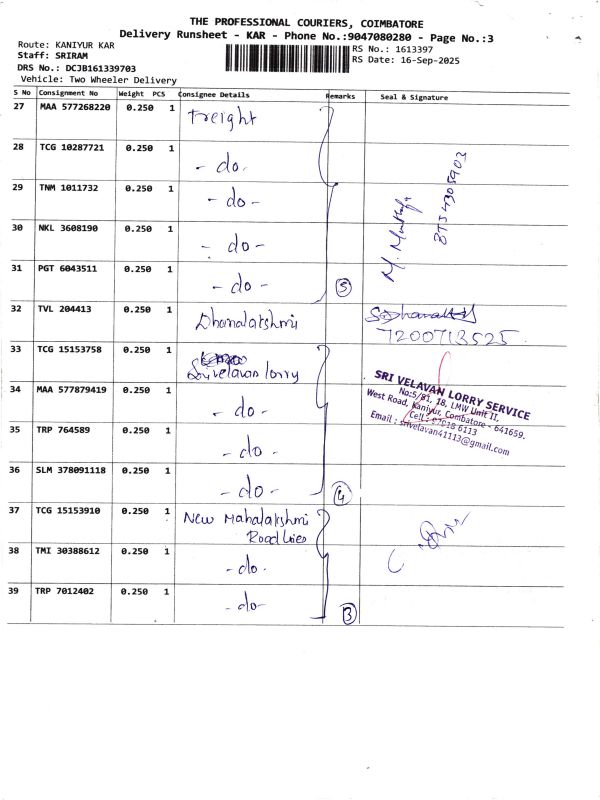 THE PROFESSIONAL COURIERS, COIMBATORE
Delivery Runsheet - KAR - Phone No.:9047080280 - Page No.:3
Route: KANIYUR KAR
Staff: SRIRAM
DRS No.: DCJB161339703
Vehicle: Two Wheeler Delivery
RS No.: 1613397
RS Date: 16-Sep-2025
S No Consignment No Weight PCS Consignee Details Remarks Seal & Signature
27 MAA 577268220 0.250 1 Freight
28 TCG 10287721 0.250 1 - do.
29 TNM 1011732 0.250 1 - do -
30 NKL 3608190 0.250 1 - do -
31 PGT 6043511 0.250 1 - do - 5
32 TVL 204413 0.250 1 Dhanalakshmi
7200713525
33 TCG 15153758 0.250 1 Sri velavan lorry
34 MAA 577879419 0.250 1 - do -
35 TRP 764589 0.250 1 - do -
36 SLM 378091118 0.250 1 - do - 4
SRI VELAVAN LORRY SERVICE
No:5/81, 18, LMW Unit II,
West Road, Kaniyur, Coimbatore - 641659.
Email : srivelavan41113@gmail.com
37 TCG 15153910 0.250 1 New Mahalakshmi
Road lines
38 TMI 30388612 0.250 1 - do.
39 TRP 7012402 0.250 1 - do - 3